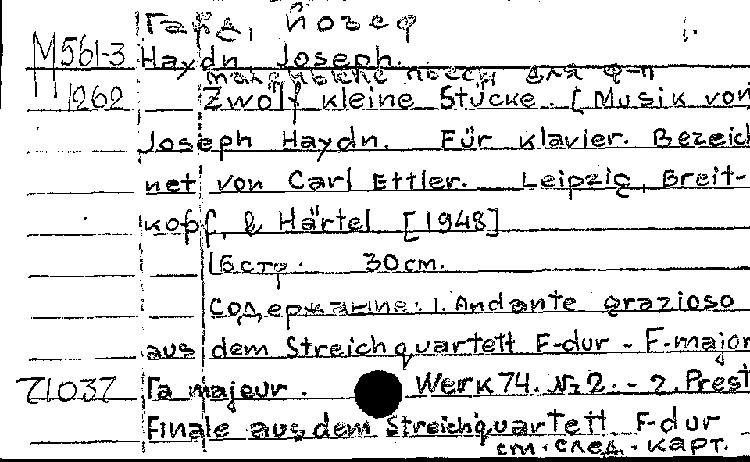 Гайдн, Йозеф 1.
М561-3 Haydn, Joseph.
маленькие пьесы для ф-п
1262 Zwölf kleine Stücke. [Musik von
Joseph Haydn. Für Klavier. Bezeich
net von Carl Ettler. Leipzig, Breit-
kopf, & Härtel [1948]
16 стр. 30 cm.
Содержание: 1. Andante grazioso
aus dem Streichquartett F-dur - F-major
Fa majeur. Werk 74. Nr 2. - 2. Prest
71037
Finale aus dem Streichquartett F-dur
см. след. карт.